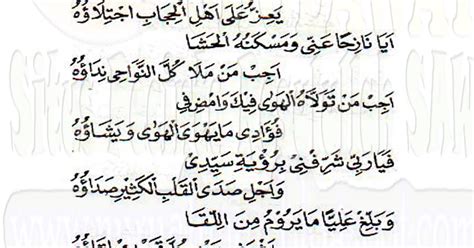 يَعِزُّ عَلَى اَهْلِ الْحِجَابِ اجْتِلَاؤُهُ
اَيَا نَازِحًا عَنِّى وَمَسْكَنُهُ الْحَشَا
اَجِبْ مَنْ مَلَا كُلَّ النَّوَاحِى نِدَاؤُهُ
اَجِبْ مَنْ تَوَلَّاهُ الْهَوَى فِيكَ وَامْضِ فِى
فُؤَادِى مَا يَهْوَى الْهَوَى وَيَشَاؤُهُ
فَيَارَبِّ شَرِّفْنِى بِرُؤْيَةِ سَيِّدِى
وَاَجْلِ صَدَى الْقَلْبِ الْكَثِيْرِ صَدَاؤُهُ
وَبَلِّغْ عَلِيًّا مَا يَرُوْمُ مِنَ اللِّقَا